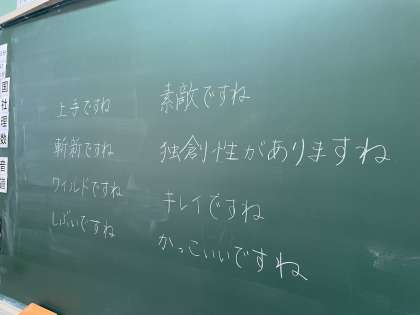 上手ですね
斬新ですね
ワイルドですね
しぶいですね
素敵ですね
独創性がありますね
キレイですね
かっこいいですね
国
社
理
数
音
道